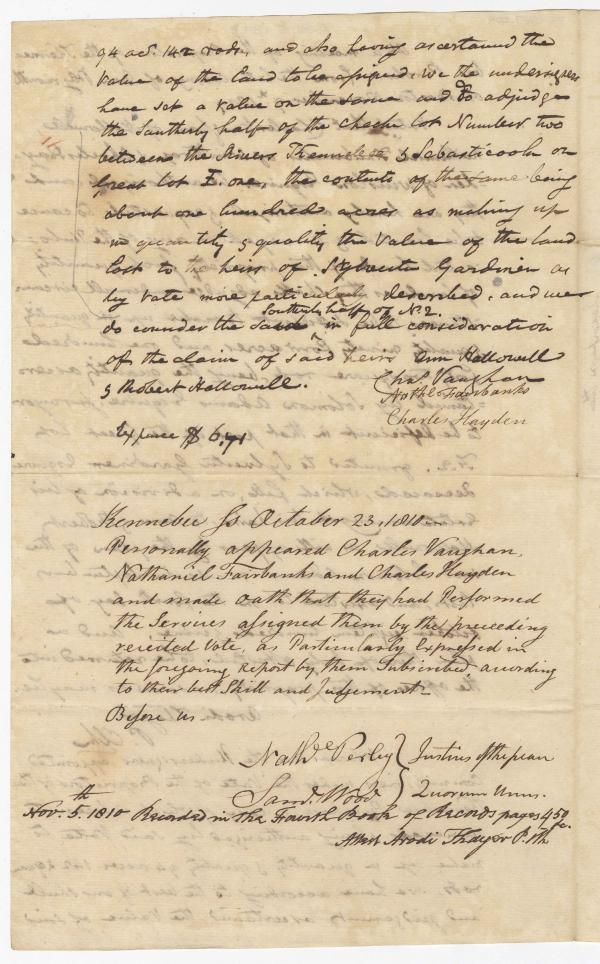 94 acs. 142 rods, and also having ascertained the
Value of the land to be assigned. We the undersigners
have set a value on the same and do adjudge
the Southerly half of the Check lot Number two
between the Rivers & Sebasticook, on
Great lot E. one, the contents of the same being
about one hundred acres as making up
in quantity & quality the Value of the land
lost to the heirs of Sylvester Gardiner as
by Vote more particularly described, and we
Southerly half of No. 2.
do consider the said ^ in full consideration
of the claim of said heirs Ann Hallowell
& Robert Hallowell.
Chas Vaughan
Nathl Fairbanks
Charles Hayden
Expence $ 6.71
Kennebec Ss October 23, 1810
Personally appeared Charles Vaughan,
Nathaniel Fairbanks and Charles Hayden
and made oath that they had Performed
the Services assigned them by the preceeding
recited Vote, as Particularly Expressed in
the foregoing report by them Subscribed, according
to their best Skill and Judgement
Before us
Nathl Perley } Justices of the peace
Saml. Wood } Quorum Unus.
Nov. 5th. 1810 Recorded in the Fourth Book of Records pages 450 &c.
Attest Arodi Thayer P. Clk